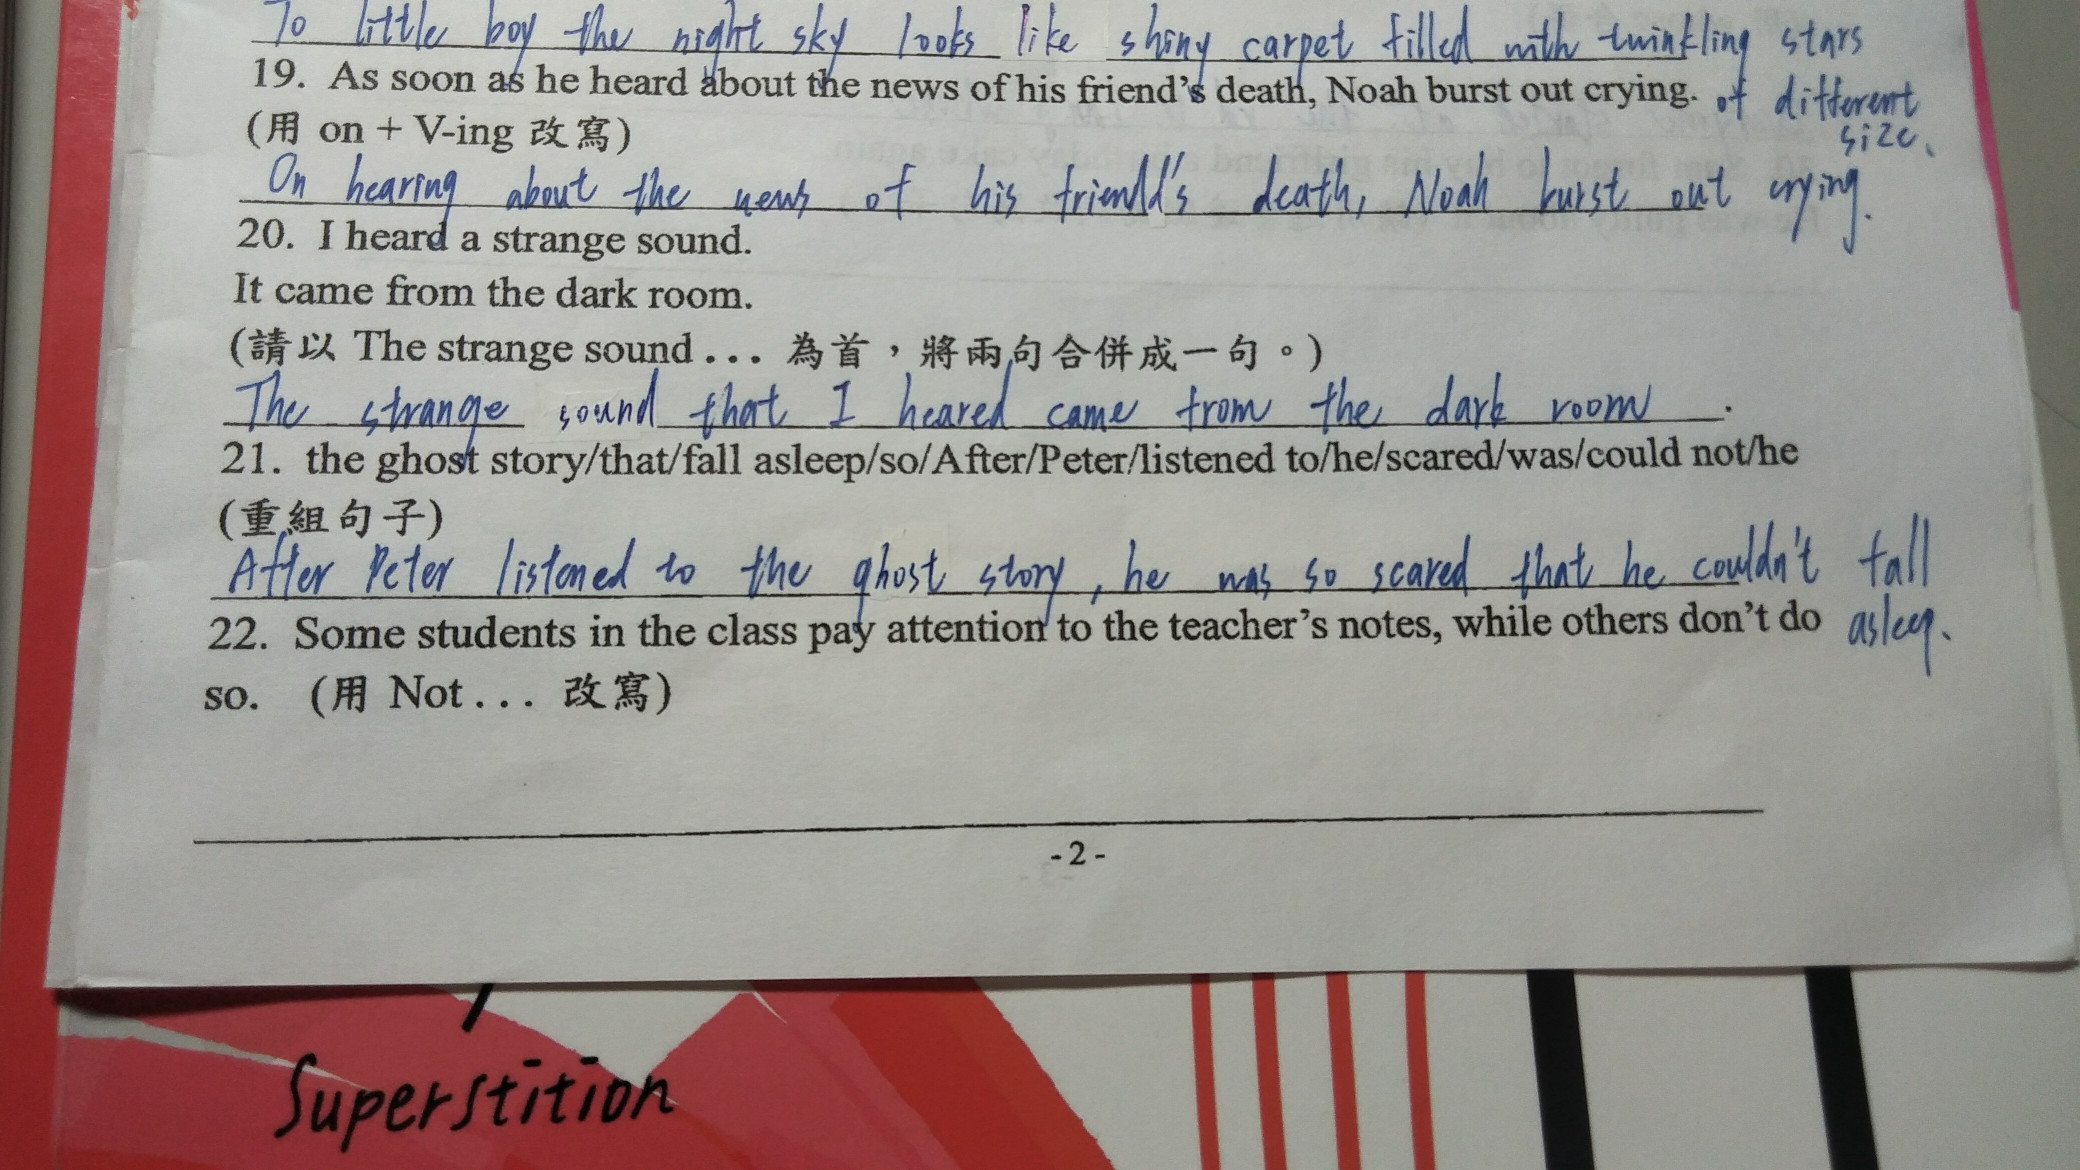 To little boy the night sky looks like shiny carpet filled with twinkling stars
19. As soon as he heard about the news of his friend's death, Noah burst out crying. of different
size.
(用 on + V-ing 改寫)
On hearing about the news of his friend's death, Noah burst out crying.
20. I heard a strange sound.
It came from the dark room.
(請以 The strange sound . . . 為首，將兩句合併成一句。)
The strange sound that I heared came from the dark room.
21. the ghost story/that/fall asleep/so/After/Peter/listened to/he/scared/was/could not/he
(重組句子)
After Peter listened to the ghost story, he was so scared that he couldn't fall
22. Some students in the class pay attention to the teacher's notes, while others don't do asleep.
so. (用 Not . . . 改寫)
-2-
Superstition